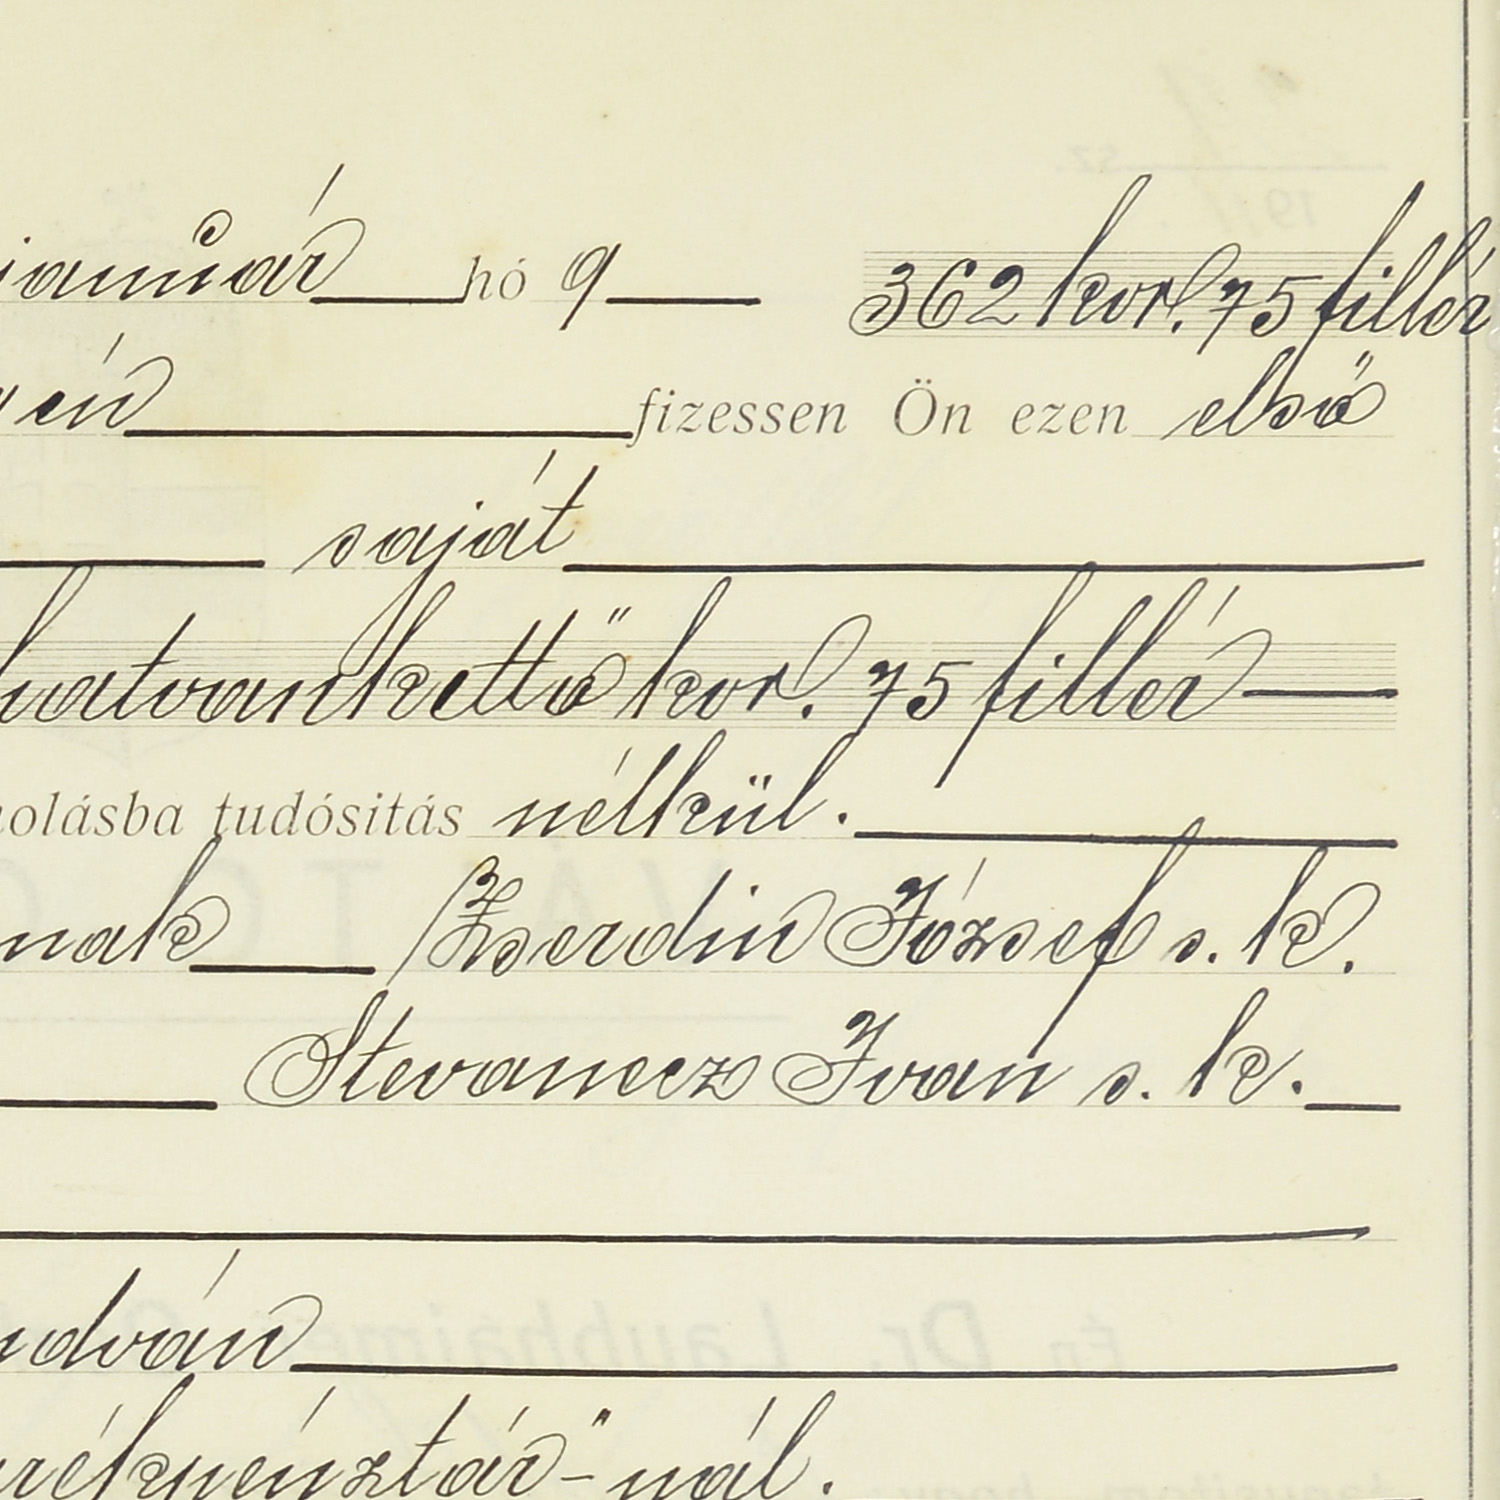 január hó 9 362 kor. 75 fillér
én fizessen Ön ezen első
saját
hatvankettő kor. 75 fillér
olásba tudósitás nélkül.
nak Zserdin József s. k.
Stevanecz Iván s. k.
dván
pénztár"-nál.